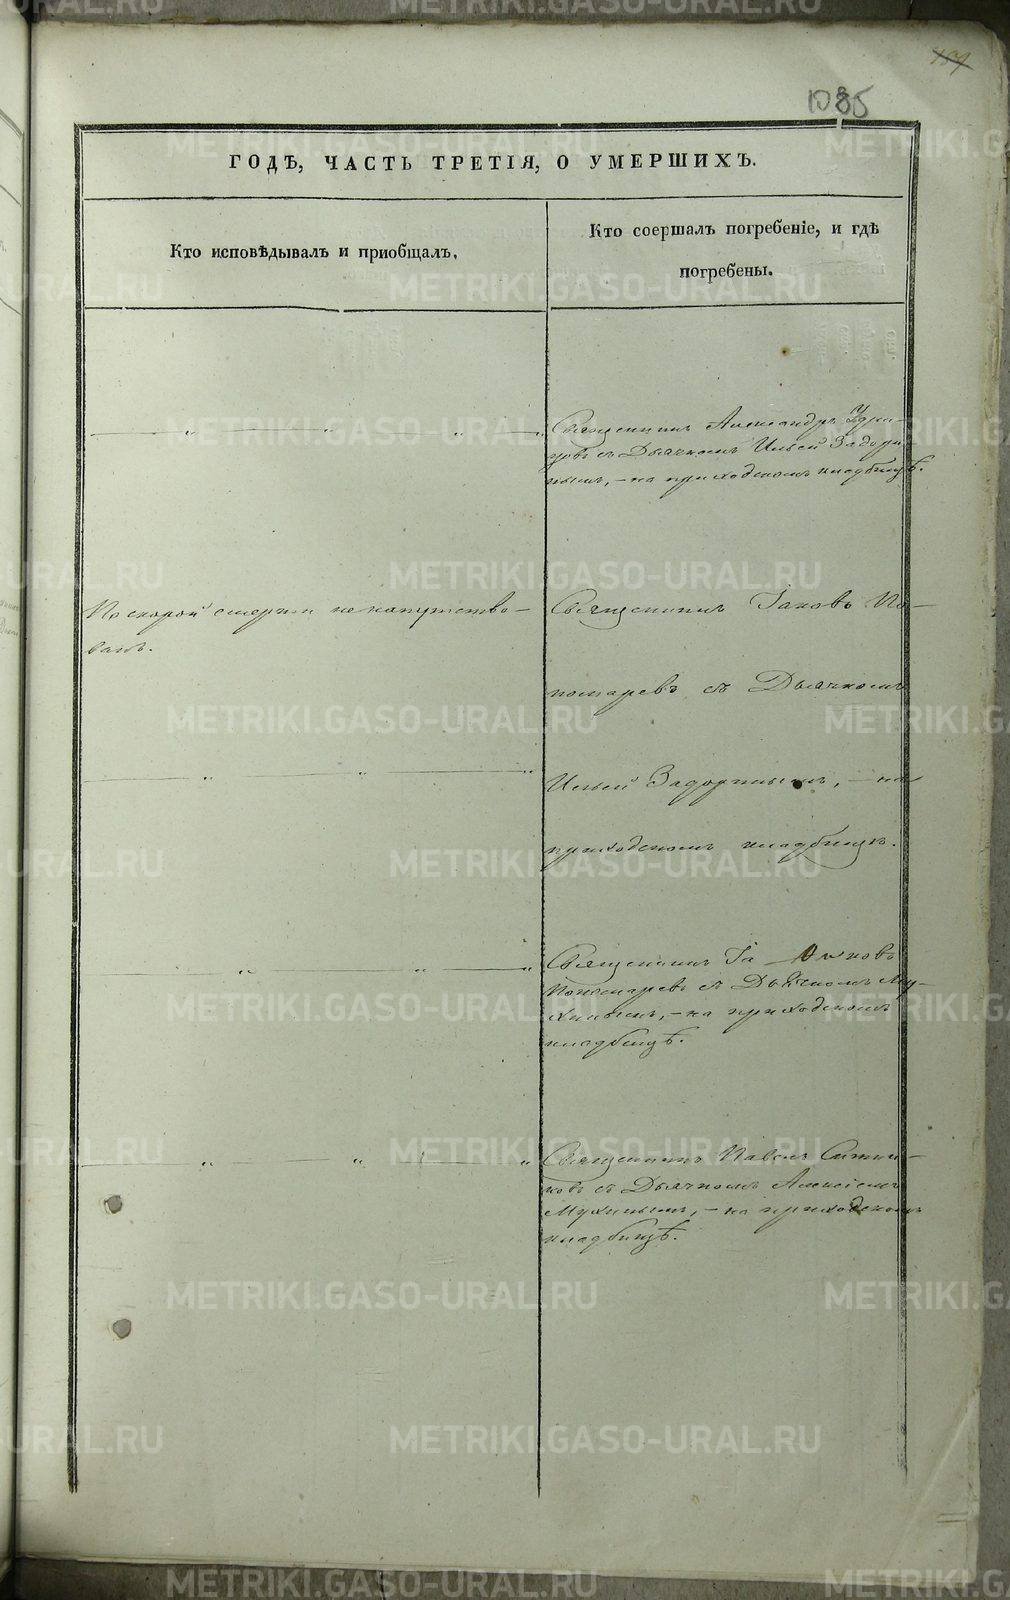 1085
ГОДѢ, ЧАСТЬ ТРЕТІЯ, О УМЕРШИХЪ.
Кто исповѣдывалъ и приобщалъ.
Кто соершалъ погребеніе, и гдѣ
погребены.
Священникъ Александръ Удри-
цовъ съ Дьячкомъ Ильей Задори-
нымъ, - на приходскомъ кладбищѣ.
По скорой смерти не напутство-
ванъ.
Священникъ Іаковъ По-
номаревъ съ Дьячкомъ
Ильей Задоринымъ, - на
приходскомъ кладбищѣ.
Священникъ Іа - ковъ
Пономаревъ съ Дьячкомъ Му-
хинымъ, - на приходскомъ
кладбищѣ.
Священникъ Павелъ Ситни-
ковъ съ Дьячкомъ Алексіемъ
Мухинымъ, - на приходскомъ
кладбищѣ.
METRIKI.GASO-URAL.RU